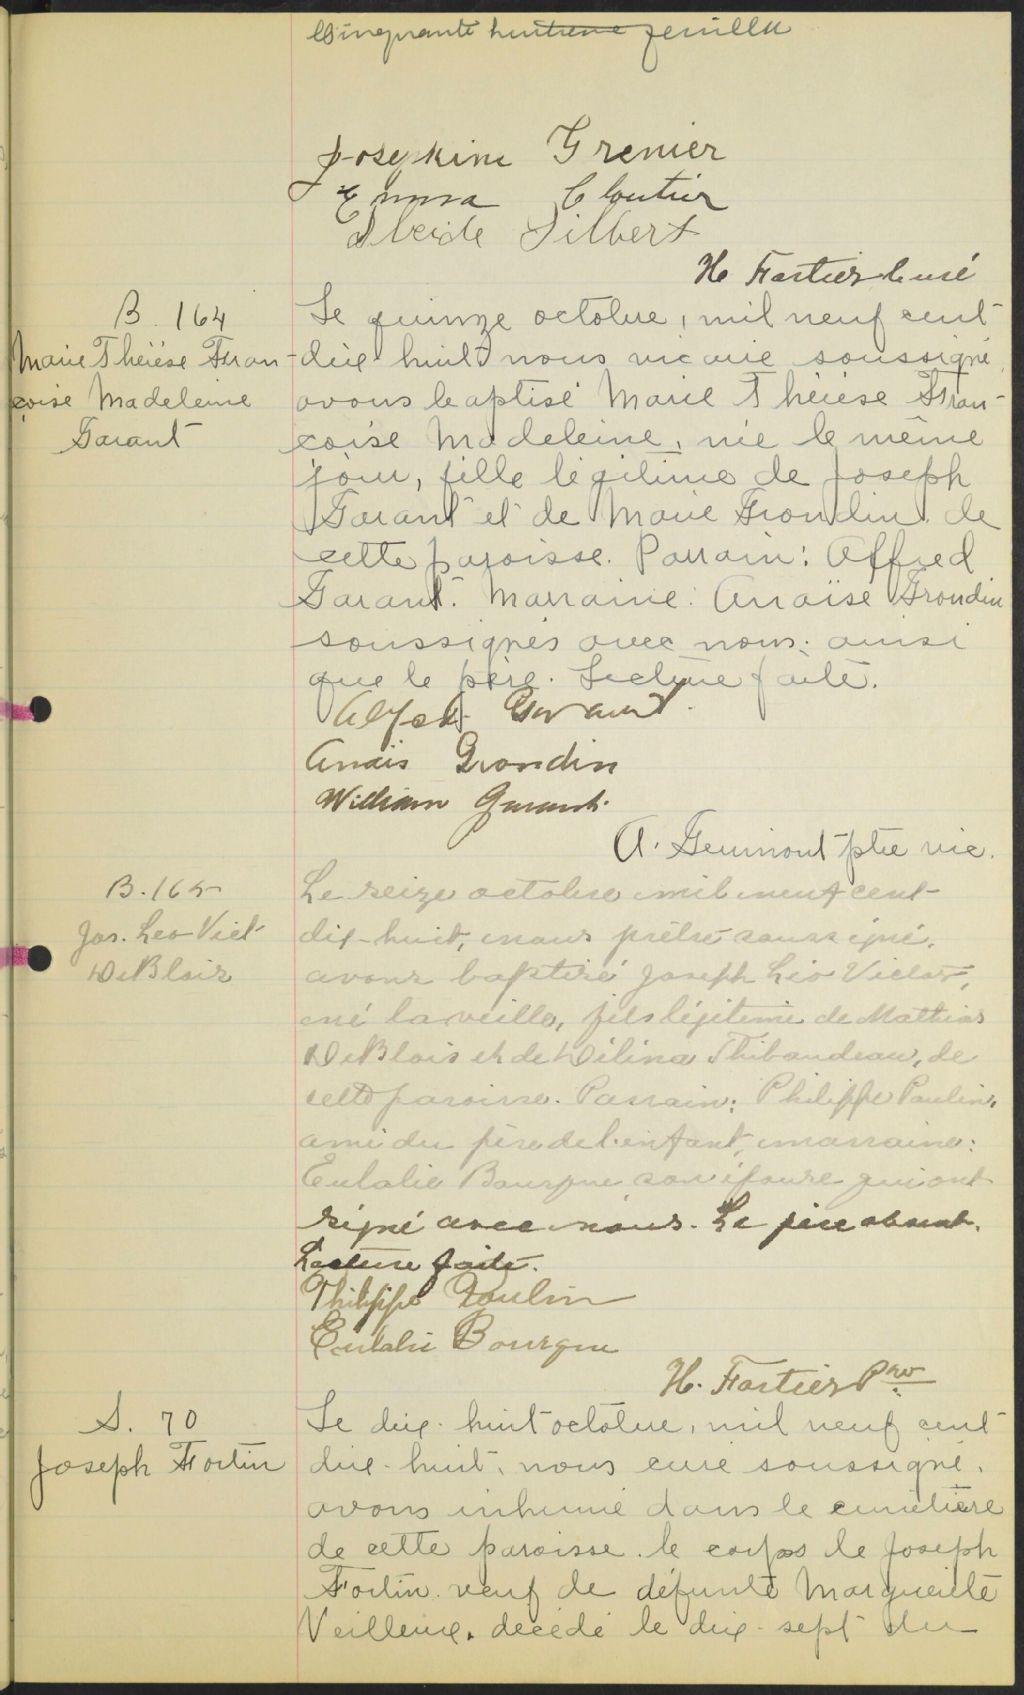 Cinquante huitième feuillet
Josephine Grenier
Emma Cloutier
Alcide Gilbert
H Fortier curé
B. 164
Marie Thérèse Fran-
çoise Madeleine
Garant
Le quinze octobre, mil neuf cent
dix-huit nous vicaire soussigné
avons baptisé Marie Thérèse Fran-
çoise Madeleine, née le même
jour, fille légitime de Joseph
Garant et de Marie Grondin de
cette paroisse. Parrain: Alfred
Garant. Marraine: Anaïse Grondin
soussignés avec nous. ainsi
que le père. Lecture faite.
Alfred Garant.
Anaïs Grondin
William Garant.
A. Genmont ptre vic.
B. 165
Jos. Leo Vict
DeBlois
Le seize octobre mil neuf cent
dix-huit, nous prêtre soussigné,
avons baptisé Joseph Léo Victor,
né la veille, fils légitime de Mathias
DeBlois et de Délina Thibaudeau, de
cette paroisse. Parrain: Philippe Poulin,
ami du père de l'enfant, marraine:
Eulalie Bourque son épouse qui ont
signé avec nous. Le père absent.
Lecture faite.
Philippe Poulin
Eulalie Bourque
H. Fortier Ptre
S. 70
Joseph Fortin
Le dix-huit octobre, mil neuf cent
dix-huit, nous curé soussigné,
avons inhumé dans le cimetière
de cette paroisse. le corps de Joseph
Fortin. veuf de défunte Marguerite
Veilleux, décédé le dix-sept du